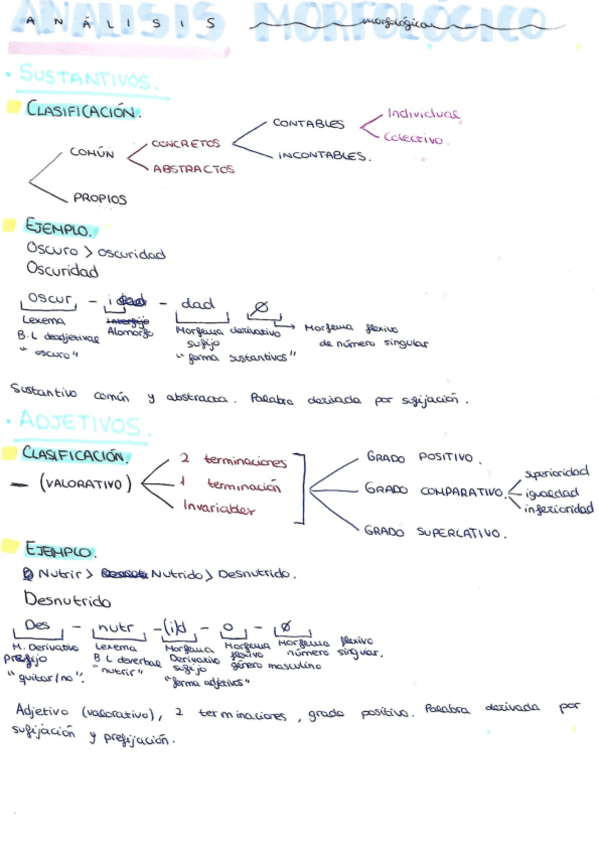 ANÁLISIS MORFOLÓGICO
ANÁLISIS morfológico
• SUSTANTIVOS.
CLASIFICACIÓN.
COMÚN
CONCRETOS
CONTABLES
Individual
Colectivo.
INCONTABLES.
ABSTRACTOS
PROPIOS
EJEMPLO.
Oscuro > oscuridad
Oscuridad
oscur - i - dad ∅
Lexema
B.L deadjetival
"oscuro"
Interfijo
Alomorfo
Morfema derivativo
sufijo
"forma sustantivos"
Morfema flexivo
de número singular
Sustantivo común y abstracta. Palabra derivada por sufijación.
• ADJETIVOS.
CLASIFICACIÓN.
- (VALORATIVO)
2 terminaciones
1 terminación
Invariables
GRADO POSITIVO.
GRADO COMPARATIVO.
superioridad
igualdad
inferioridad
GRADO SUPERLATIVO.
EJEMPLO.
Nutrir > Nutrido > Desnutrido.
Desnutrido
Des - nutr - (i)d - o - ∅
M. Derivativo
prefijo
"quitar/no".
Lexema
B L deverbal
"nutrir"
Morfema
Derivativo
sufijo
"forma adjetivos"
Morfema
flexivo
género masculino
Morfema flexivo
número singular.
Adjetivo (valorativo), 2 terminaciones, grado positivo. Palabra derivada por
sufijación y prefijación.